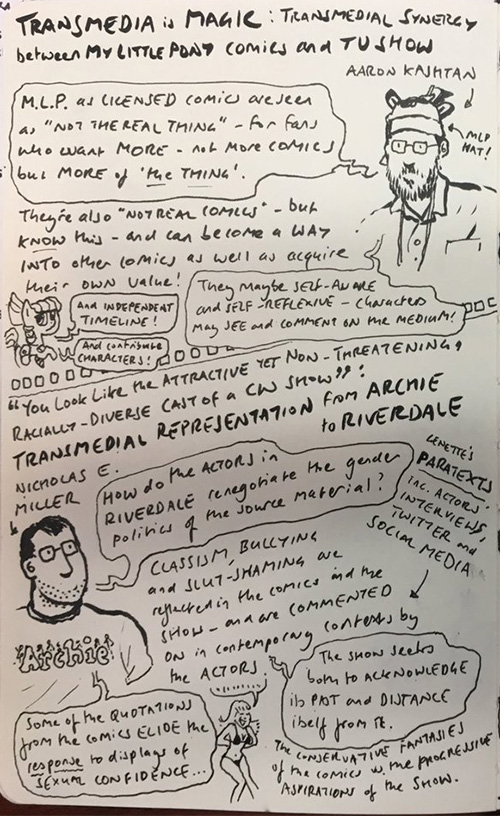 TRANSMEDIA is MAGIC: TRANSMEDIAL SYNERGY
between MY LITTLE PONY comics and TV SHOW
AARON KASHTAN
M.L.P. as LICENSED comics are seen
as "NOT THE REAL THING" - for fans
who want MORE - not more COMICS
but MORE of 'the THING'.
MLP
HAT!
They're also "NOT REAL COMICS" - but
KNOW this - and can become a WAY
INTO other comics as well as acquire
their own value!
and INDEPENDENT
TIMELINE!
and contribute
CHARACTERS!
They may be SELF-AWARE
and SELF-REFLEXIVE - characters
may SEE and COMMENT ON the MEDIUM!
"You Look Like the ATTRACTIVE YET NON-THREATENING,
RACIALLY-DIVERSE CAST of a CW SHOW":
TRANSMEDIAL REPRESENTATION from ARCHIE
to RIVERDALE
NICHOLAS E.
MILLER
How do the ACTORS in
RIVERDALE renegotiate the gender
politics of the source material?
GENETTE'S
PARATEXTS
inc. ACTORS'
INTERVIEWS,
TWITTER and
SOCIAL MEDIA
CLASSISM, BULLYING
and SLUT-SHAMING are
reflected in the comics and the
SHOW - and are COMMENTED
ON in contemporary contexts by
the ACTORS
Archie
The show seeks
both to ACKNOWLEDGE
its PAST and DISTANCE
itself from it.
Some of the QUOTATIONS
from the comics ELIDE the
response to displays of
SEXUAL CONFIDENCE...
The CONSERVATIVE FANTASIES
of the comics vs. the PROGRESSIVE
ASPIRATIONS of the SHOW.